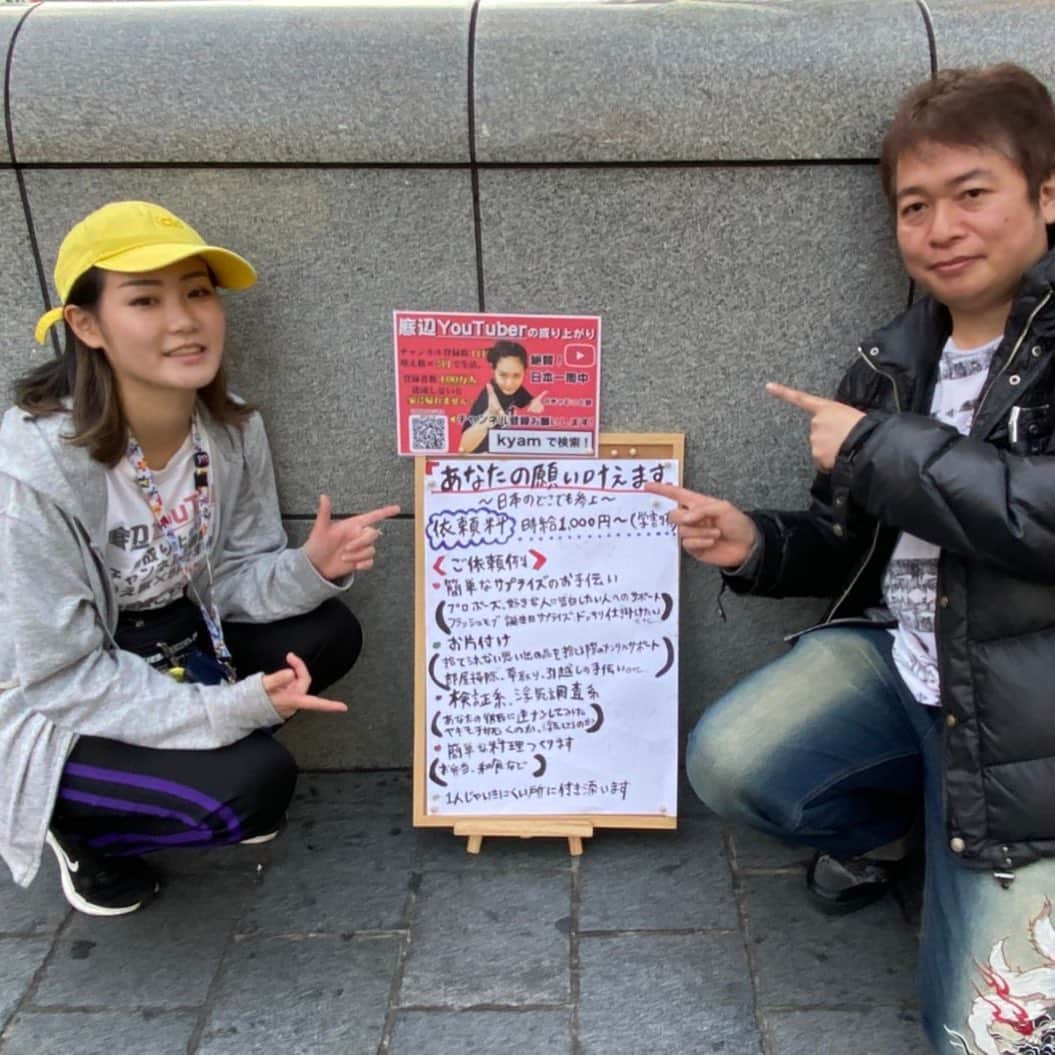 底辺YouTuberの成り上がり
チャンネル登録数
で生活。
登録者数100万人
達成しないと
家に帰れません
絶賛！
日本一周中
チャンネル登録お願いします!
kyam で検索！
「あなたの願い叶えます
〜日本のどこでも参上〜
依頼料 時給1,000円〜(学割
ご依頼例
・簡単なサプライズのお手伝い
プロポーズ、好きな人に告白したい人へのサポート
フラッシュモブ 誕生日サプライズ、ドッキリ仕掛けたい
・お片付け
捨てられない思い出の品を捨てる際のメンタルサポート
部屋掃除、草取り、引越しの手伝いetc...
・検証系、浮気調査系
あなたの彼氏に逆ナンしてみた
・簡単な料理つくります
お弁当、和食など
・1人じゃ行きにくい所に付き添います
底辺YouTu
成り上
チャンネ